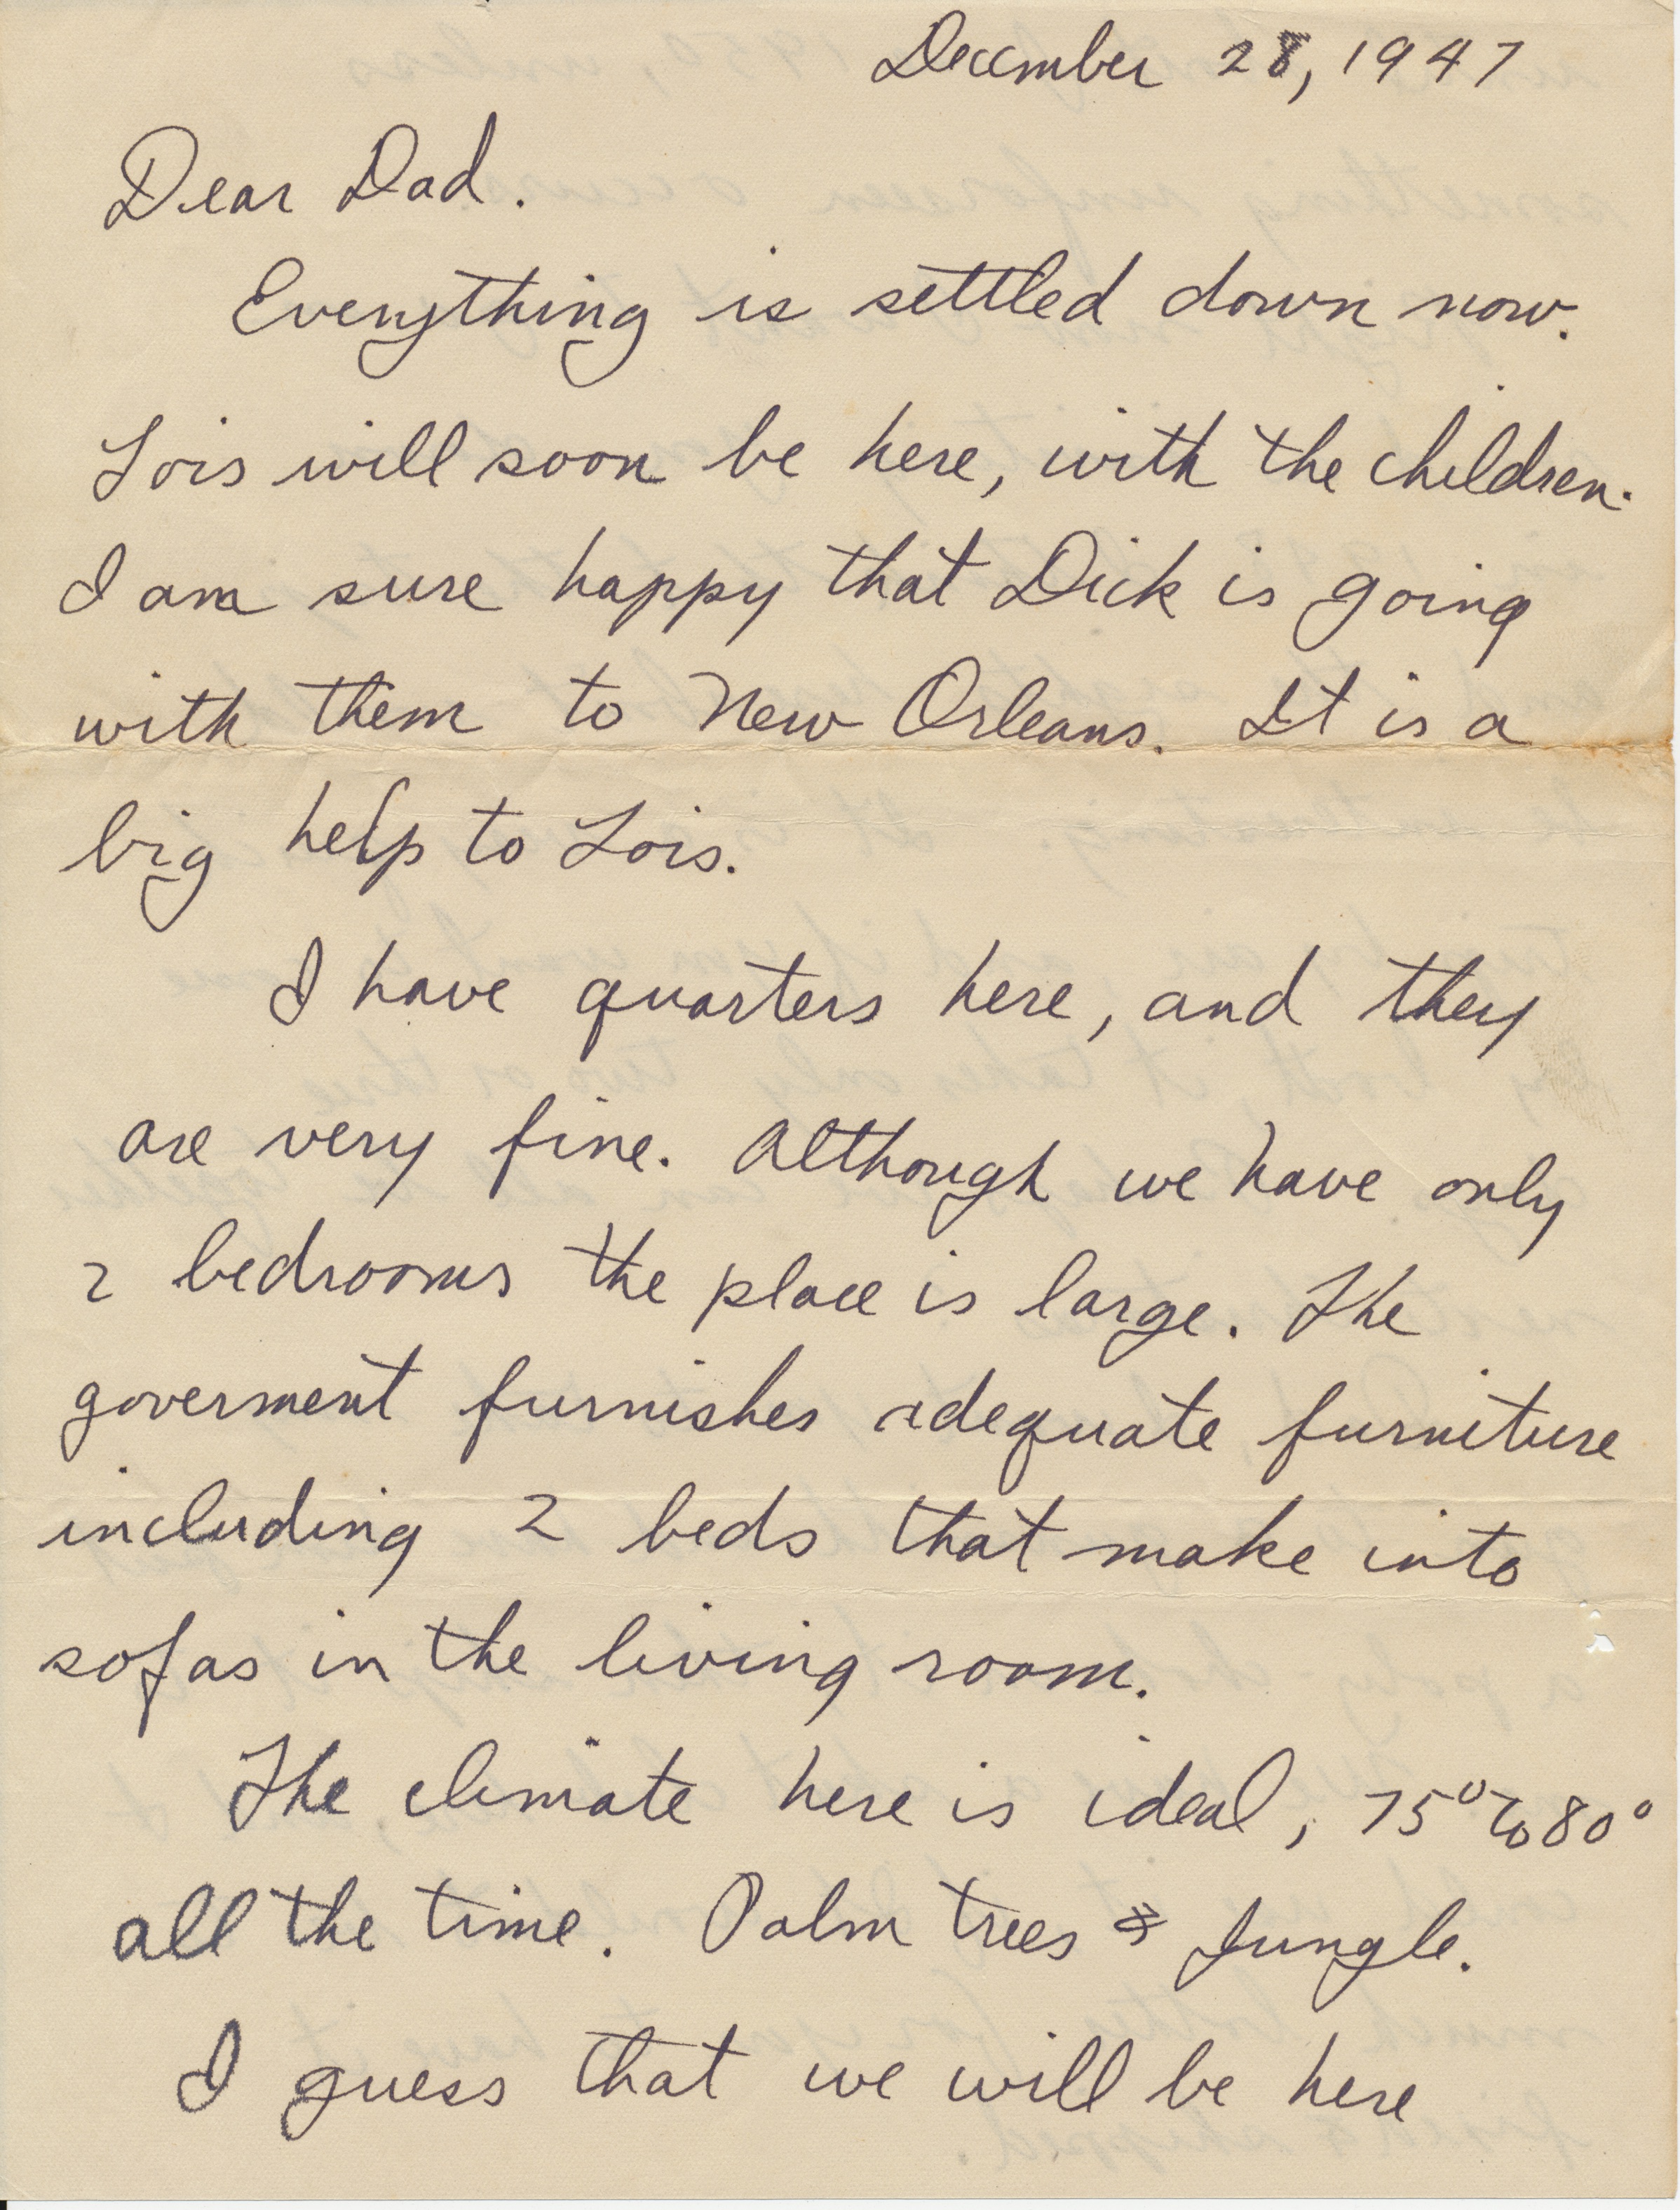 December 28, 1947
Dear Dad.
Everything is settled down now.
Lois will soon be here, with the children.
I am sure happy that Dick is going
with them to New Orleans. It is a
big help to Lois.
I have quarters here, and they
are very fine. Although we have only
2 bedrooms the place is large. The
goverment furnishes adequate furniture
including 2 beds that make into
sofas in the living room.
The climate here is ideal, 75° to 80°
all the time. Palm trees & Jungle.
I guess that we will be here